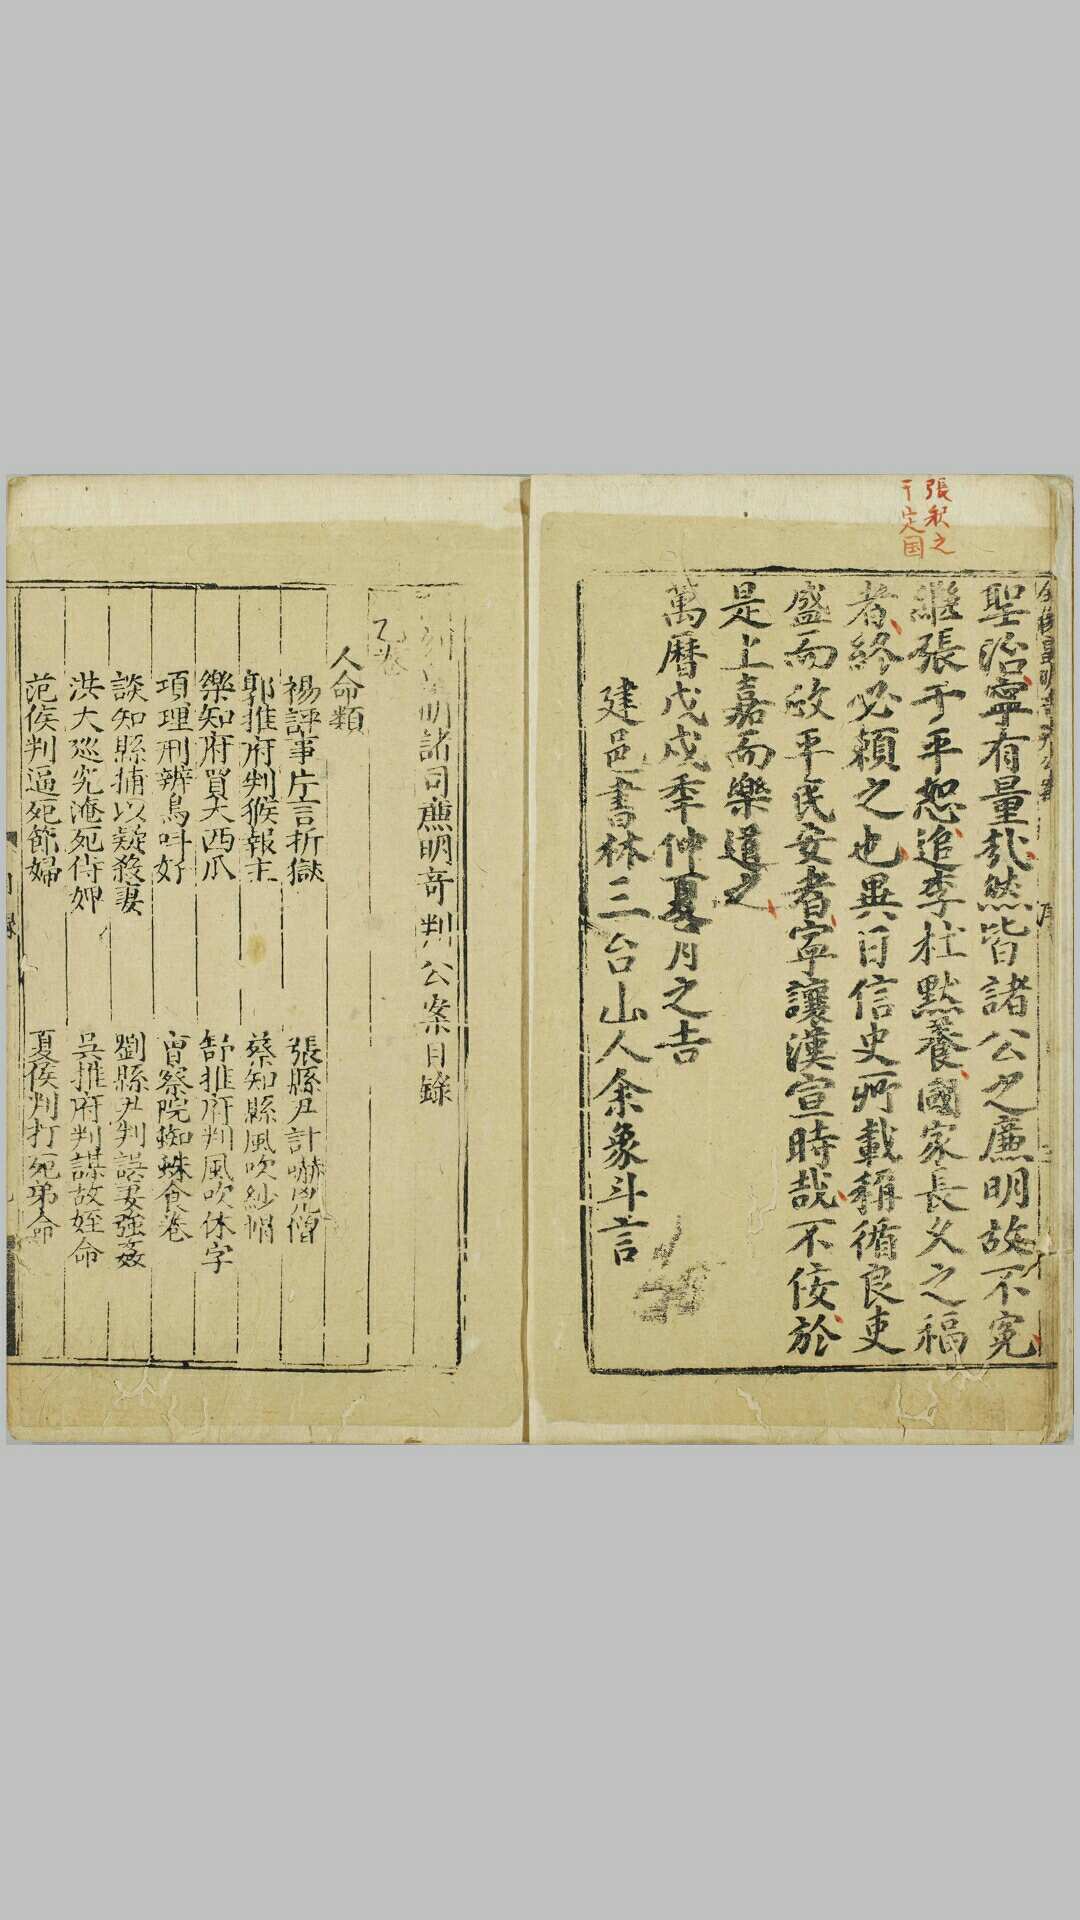 張釈之
于定国
聖治寧有量哉然皆諸公之廉明故不寃
繼張于平恕追李杜默養國家長久之福
者終必賴之也異日信史所載稱循良吏
盛而政平民安者寧讓漢宣時哉不佞於
是上嘉而樂道之
萬曆戊戌季仲夏月之吉
建邑書林三台山人余象斗言
明諸司廉明奇判公案目錄
乙卷
人命類
楊評事片言折獄
張縣尹計嚇兇僧
郭推府判猴報主
蔡知縣風吹紗帽
樂知府買大西瓜
舒推府判風吹休字
項理刑辨鳥叫好
曾察院蜘蛛食卷
談知縣捕以疑殺妻
劉縣尹判誤妻強姦
洪大巡究淹死侍婢
吳推府判謀故姪命
范侯判逼死節婦
夏侯判打死弟命